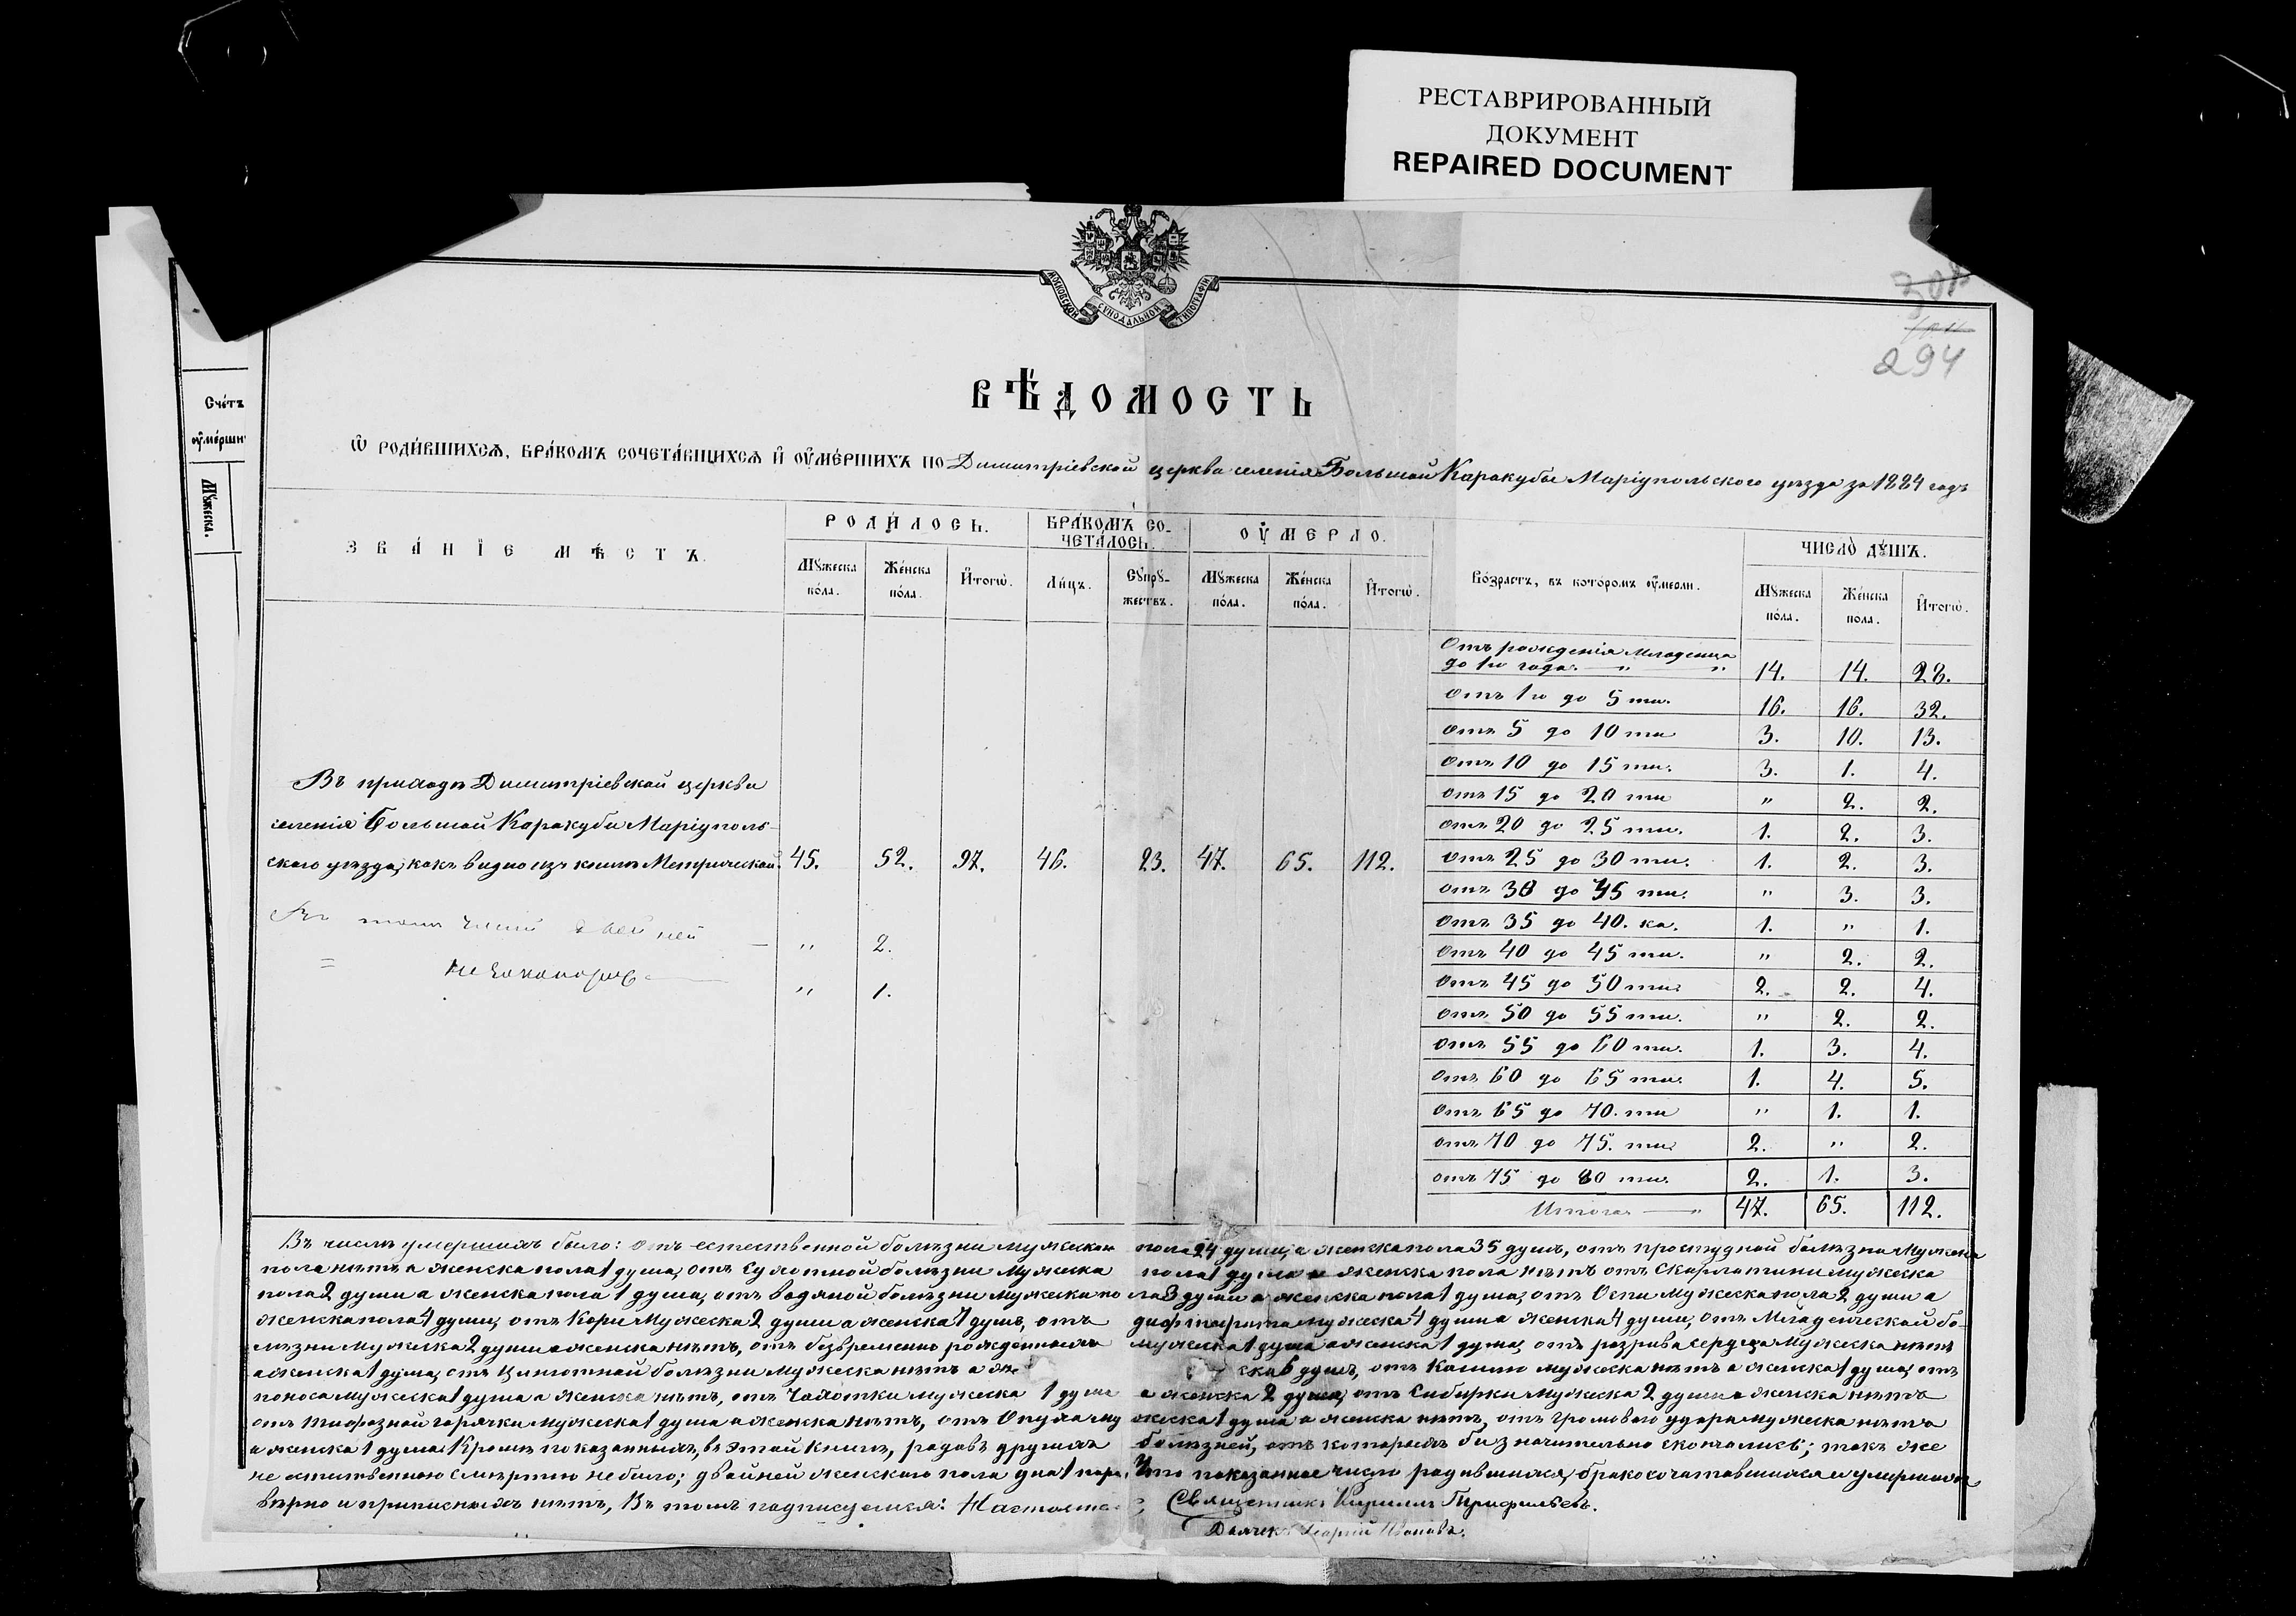 РЕСТАВРИРОВАННЫЙ
ДОКУМЕНТ
REPAIRED DOCUMENT
МОСКОВСКОЙ СѴНОДАЛЬНОЙ ТИПОГРАФІИ
294
Счетъ
оумерши
Мужеска.
ВѢДОМОСТЬ
Ѡ РОДИВШИХСЯ, БРАКОМЪ СОЧЕТАВШИХСЯ И ОУМЕРШИХЪ ПО Димитріевской церкви селенія Большой Каракубы Маріупольского уезда за 1884 годъ
ЗВАНІЕ МѢСТЪ.
РОДИЛОСЬ.
БРАКОМЪ СО-
ЧЕТАЛОСЬ.
ОУМЕРЛО.
Возрастъ, въ которомъ оумерли.
ЧИСЛО ДУШЪ.
Мужеска пола. Женска пола. Итогѡ. Лицъ. Супру-жествъ. Мужеска пола. Женска пола. Итогѡ. Мужеска пола. Женска пола. Итогѡ.
Отъ рожденія младенца
до 1го года. — " " 14. 14. 28.
отъ 1го до 5 ти. 16. 16. 32.
отъ 5 до 10 ти 3. 10. 13.
отъ 10 до 15 ти. 3. 1. 4.
отъ 15 до 20 ти " 2. 2.
отъ 20 до 25 ти. 1. 2. 3.
отъ 25 до 30 ти. 1. 2. 3.
отъ 30 до 35 ти. " 3. 3.
отъ 35 до 40. ка. 1. " 1.
отъ 40 до 45 ти. " 2. 2.
отъ 45 до 50 ти. 2. 2. 4.
отъ 50 до 55 ти. " 2. 2.
отъ 55 до 60 ти. 1. 3. 4.
отъ 60 до 65 ти. 1. 4. 5.
отъ 65 до 70. ти " 1. 1.
отъ 70 до 75. ти. 2. " 2.
отъ 75 до 80 ти. 2. 1. 3.
Итого — " 47. 65. 112.
Въ приходѣ Димитріевской церкви
селенія Большой Каракуби Маріуполь-
ского уезда, какъ видно изъ книгъ Метрической. 45. 52. 97. 46. 23. 47. 65. 112.
Въ томъ числѣ двойней — " 2.
= " 1.
Въ числѣ умершихъ было: отъ естественной болѣзни мужеска пола 24 души, а женска пола 35 душъ, отъ простудной болѣзни мужеска
пола нѣтъ а женска пола 1 душа, отъ сухотной болѣзни мужеска пола 1 душа а женска пола нѣтъ отъ скарлатини мужеска
пола 2 души а женска пола 1 душа, отъ водяной болѣзни мужеска по ла 3 души а женска пола 1 душа, отъ Оспи мужеска пола 2 души а
женска пола 4 души, отъ Кори мужеска 2 души а женска 7 душъ, отъ дифтерита мужеска 4 души а женска 4 души, отъ Младенческой бо-
лѣзни мужеска 2 души а женска нѣтъ, отъ безвременно рожденныхъ мужеска 1 душа а женска 1 душа, отъ разрива сердца мужеска нѣтъ
а женска 1 душа, отъ Цинготной болѣзни мужеска нѣтъ а же ска 6 душъ, отъ Кашлю мужеска нѣтъ а женска 1 душа, отъ
поноса мужеска 1 душа а женска нѣтъ, отъ Чахотки мужеска 1 душа а женска 2 души, отъ Сибирки мужеска 2 души а женска нѣтъ
отъ тифозной горячки мужеска 1 душа а женска нѣтъ, отъ Опуха му жеска 1 душа а женска нѣтъ, отъ громоваго удара мужеска нѣтъ
а женска 1 душа. Кроме показанныхъ, въ этой книгѣ, родовъ другихъ болѣзней, отъ которыхъ би значительно скончались; такъ же
не естественною смертію не било; двойней женскаго пола одна 1 пара, Что показанное число родившихся, бракосочетавшихся и умершихъ
вѣрно и приписныхъ нѣтъ, Въ томъ подписуемся: Настояте Священникъ Кириллъ
Дьячекъ Георгій Ивановъ.